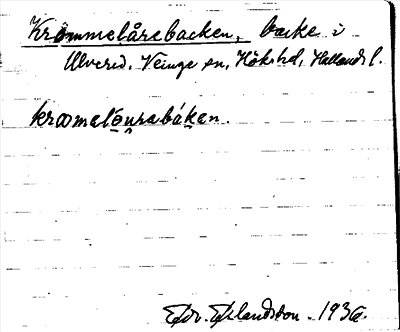 Krommelårebacken, backe i
Ulvered, Veinge sn, Hökshd, Hallands l.
krωmelǫurabákan.
Edv. Erlandsson. 1936.